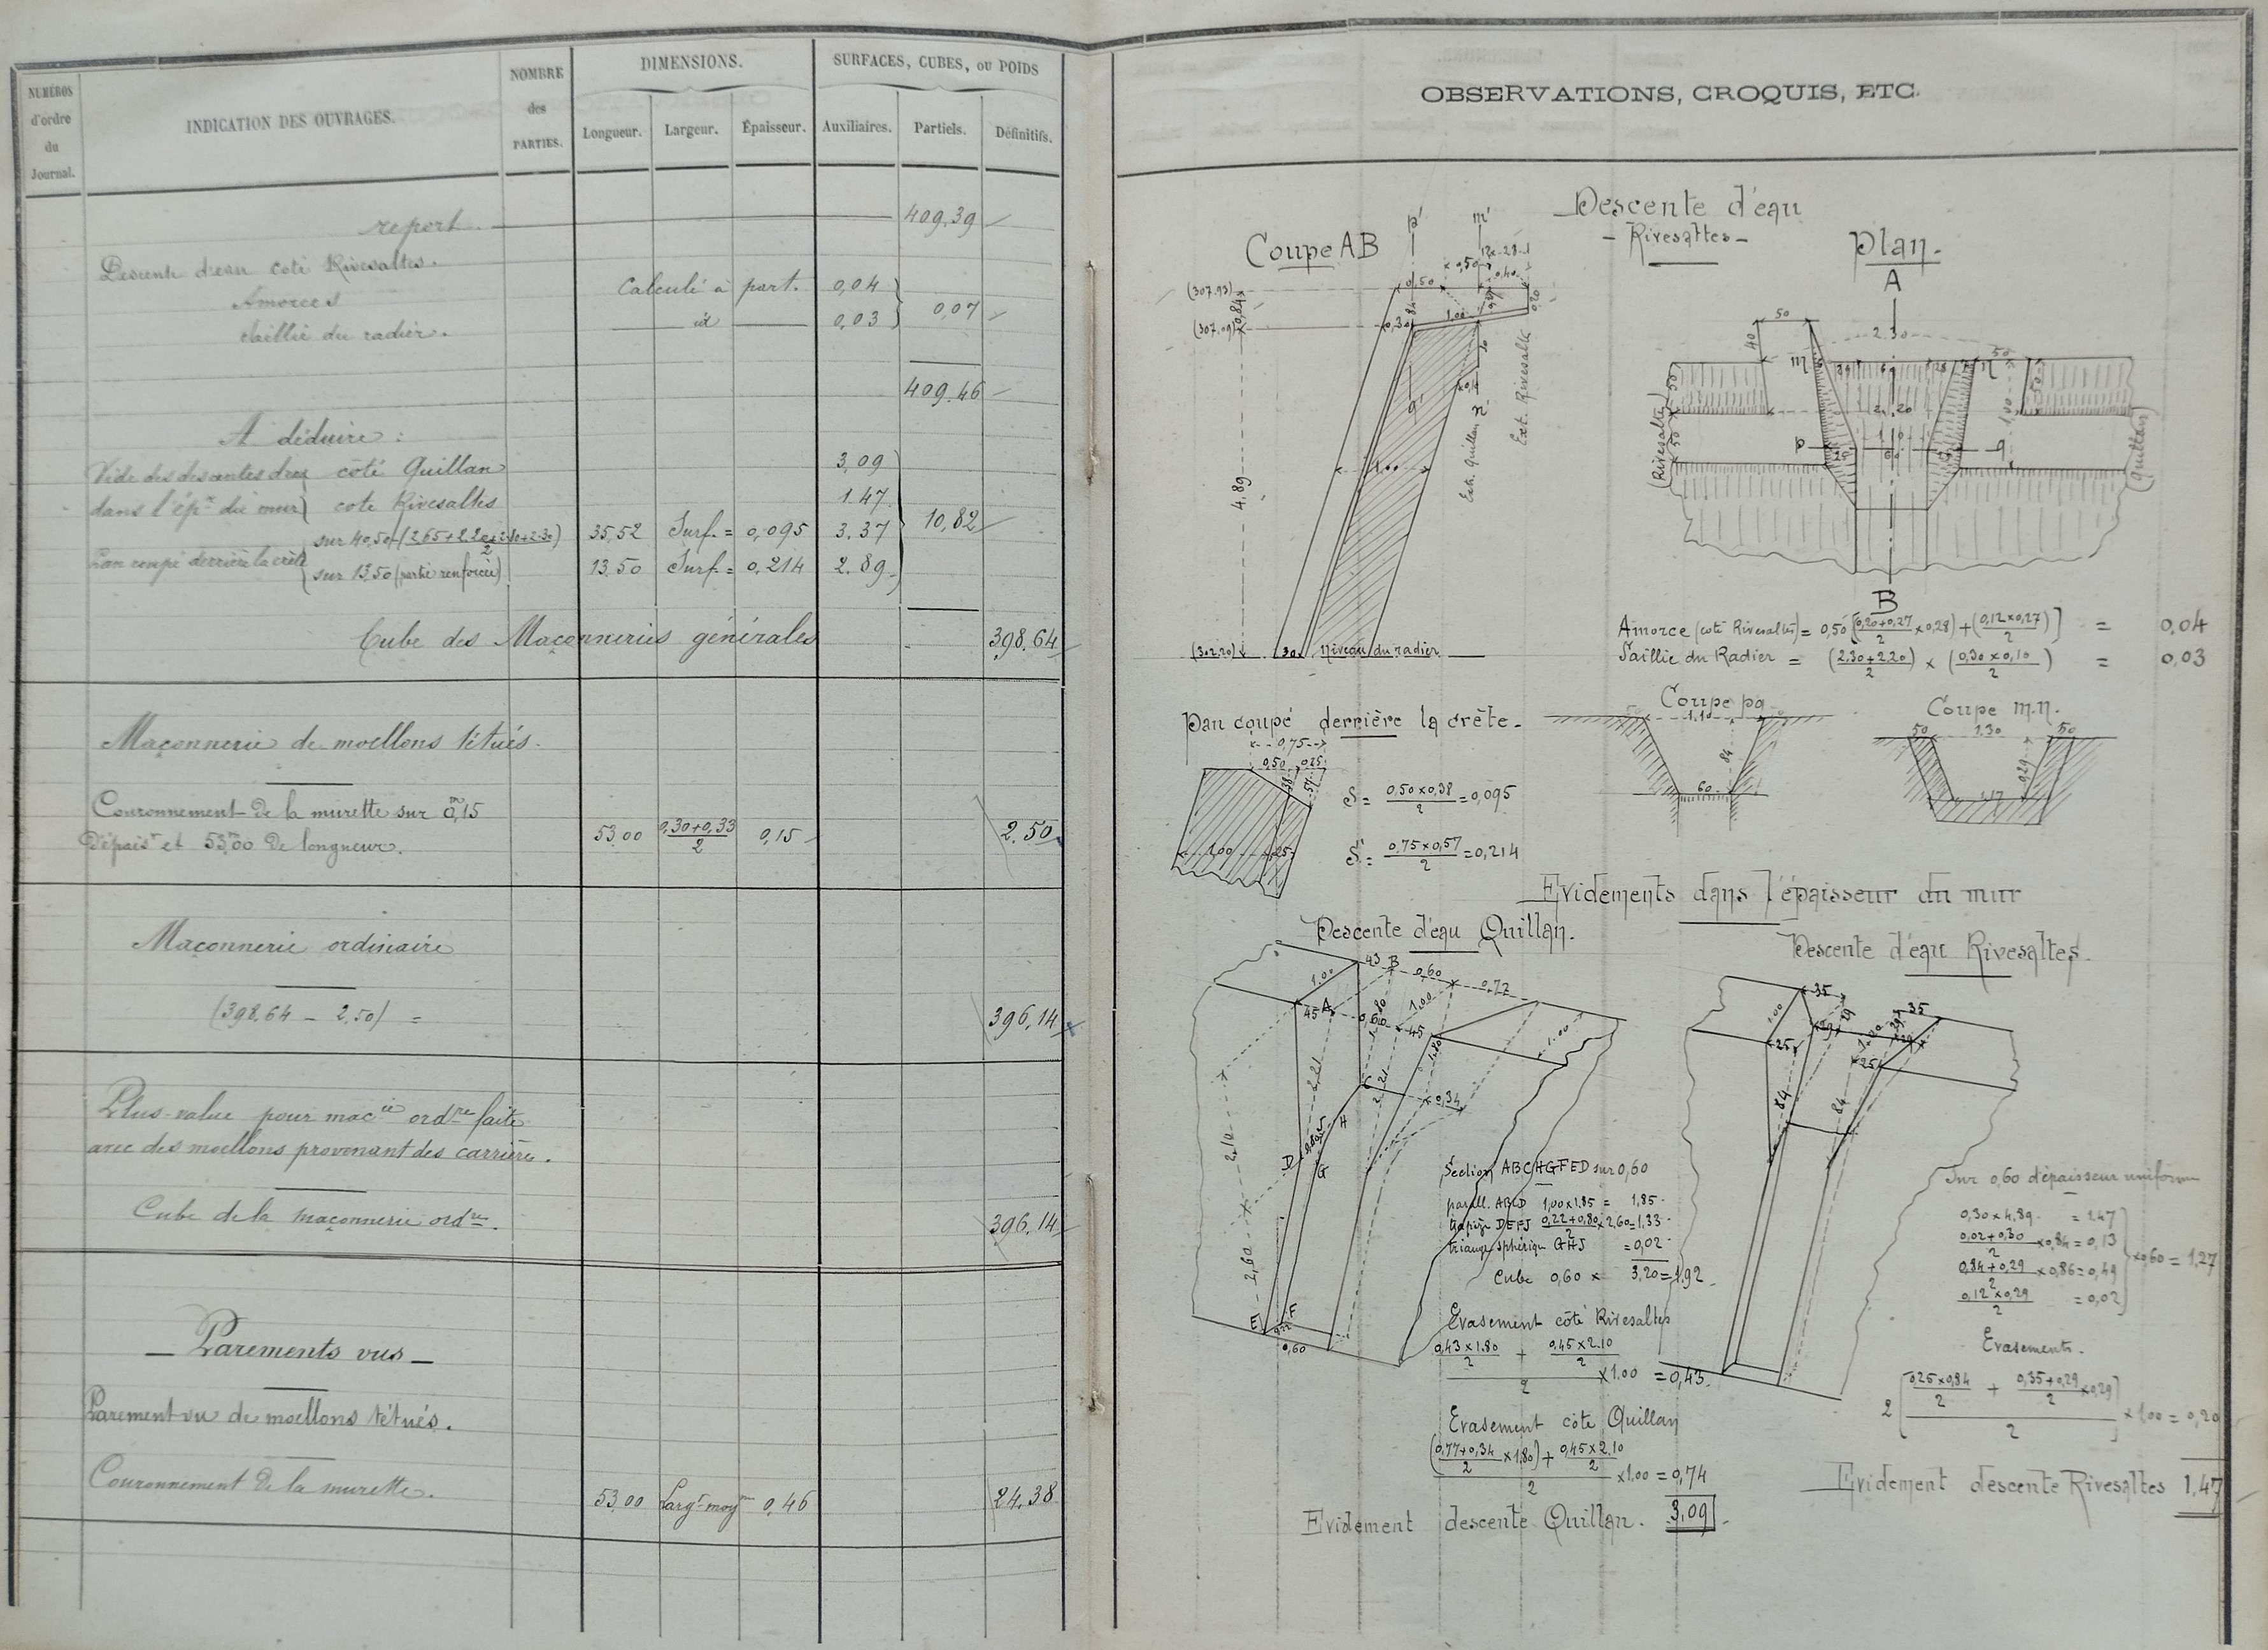 NUMÉROS d'ordre du Journal.
INDICATION DES OUVRAGES.
NOMBRE des PARTIES.
DIMENSIONS.
Longueur. Largeur. Épaisseur.
SURFACES, CUBES, OU POIDS
Auxiliaires. Partiels. Définitifs.
report. 409,39
Descente d'eau coté Rivesaltes.
Amorces Calculé à part. 0,04
Saillie du radier. id 0,03 } 0,07
409,46
A déduire :
Vide des descentes d'eau côté Quillan 3,09
dans l'épr du mur) cote Rivesaltes 1.47
sur 40,50-(2,65+2,20+2,10+2.30)/2 35,52 Surf. = 0,095 3.37 10,82
Pan coupé derrière la crête sur 13,50 (partie renforcée) 13.50 Surf. = 0,214 2.89
Cube des Maçonneries générales 398.64
Maçonnerie de moellons têtués.
Couronnement de la murette sur 0m,15
d'épaisr et 53m,00 de longueur. 53.00 0,30+0,33/2 0,15 2.50
Maçonnerie ordinaire
(398,64 - 2,50) = 396,14
Plus-value pour macie ordre faite
avec des moellons provenant des carrière.
Cube de la maçonnerie ordre. 396,14
- Parements vus -
Parement vu de moellons têtués.
Couronnement de la murette. 53.00 Largr moy 0,46 24.38
OBSERVATIONS, CROQUIS, ETC.
Descente d'eau
- Rivesaltes -
Coupe AB
p' m'
0,50 12 28
0,50 0,40
(307.93) 0,84
(307.09) 0,30 84 1,00 0,20
q'
Ext. Quillan
Ext. Rivesalte
4,89
1,00
(302.20) 30 Niveau du radier
Plan.
A
50
40 2.30
m 50 n
50 2,20 1,00 50
(Rivesalte) 50 p q (Quillan)
25 60
B
Amorce (coté Rivesaltes) = 0,50 [0,20+0,27/2 x0,28)+(0,12x0,27/2)] = 0,04
Saillie du Radier = (2,30+2,20/2) x (0,30x0,10/2) = 0,03
Pan coupé derrière la crête.
0,75
0,50 0,25
38 57
1,00 25
S = 0,50x0,38/2 = 0,095
S' = 0,75x0,57/2 = 0,214
Coupe pq
1.10
84
60
Coupe m.n.
50 1,30 50
0,29
1,17
Evidements dans l'épaisseur du mur
Descente d'eau Quillan.
43 B 0,60 0,77
1.00
45 A 0,60 45 1,00
1,80 1.00
2,21 C 2,21
0,34
2,10 H
D G
2,60
E F
0,22
0,60
Section ABCHGFED sur 0,60
parall. ABCD 1,00x1,85 = 1,85
trapèze DEFJ 0,22+0,80/2 x2,60=1,33
triangle sphérique GHJ = 0,02
Cube 0,60 x 3,20=1,92
Evasement côté Rivesaltes
0,43x1.80/2 + 0,45x2.10/2
/2 x1.00 = 0,43
Evasement côté Quillan
(0,77+0,34/2 x1,80)+ 0,45x2.10/2
/2 x1.00 = 0,74
Evidement descente Quillan. 3,09
Descente d'eau Rivesaltes.
35
1.00 29 29 35
25 29
25
84 84
Sur 0,60 d'épaisseur uniforme
0,30x4,89 = 1.47
0,02+0,30/2 x0,84 = 0,13
0,84+0,29/2 x0,86 = 0,49
0,12x0,29/2 = 0,02
x0,60 = 1,27
Evasements.
2 [0,25x0,84/2 + 0,35+0,29/2 x0,29]
/2 x1.00 = 0,20
Evidement descente Rivesaltes 1,47